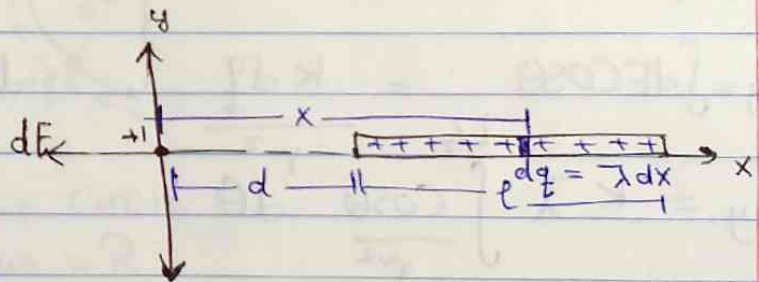 y
x
dE
+1
+ + + + + + + + + +
x
d
l
dq = λdx